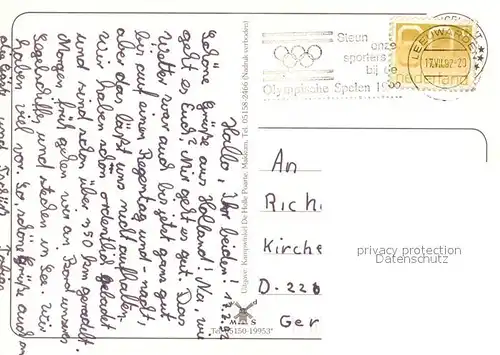 Hallo, Ihr beiden! 17.7.92
Schöne Grüße aus Holland! Na, wie
geht es Euch? Mir geht es gut. Das
Wetter war auch bis jetzt ganz gut
bis auf einen Regentag und -nacht,
aber das läßt uns nicht auffallen.
Wir haben schon ordentlich gebadet
und sind schon über 250 km geradelt.
Morgen früh gehen wir an Bord unseres
und stechen in See. Wir
haben viel vor. So, schöne Grüße auch an
und
Uitgave: Kampwinkel De Holle Poarte, Makkum, Tel. 05158-2466 (Nadruk verboden)
M S
Tel. 05150-19953*
Steun
onze
sporters
bij de
Olympische Spelen 19
LEEUWARDEN
17.VII.92-20
nederland
An
Rich
Kirche
D-228
Ger
privacy protection
Datenschutz